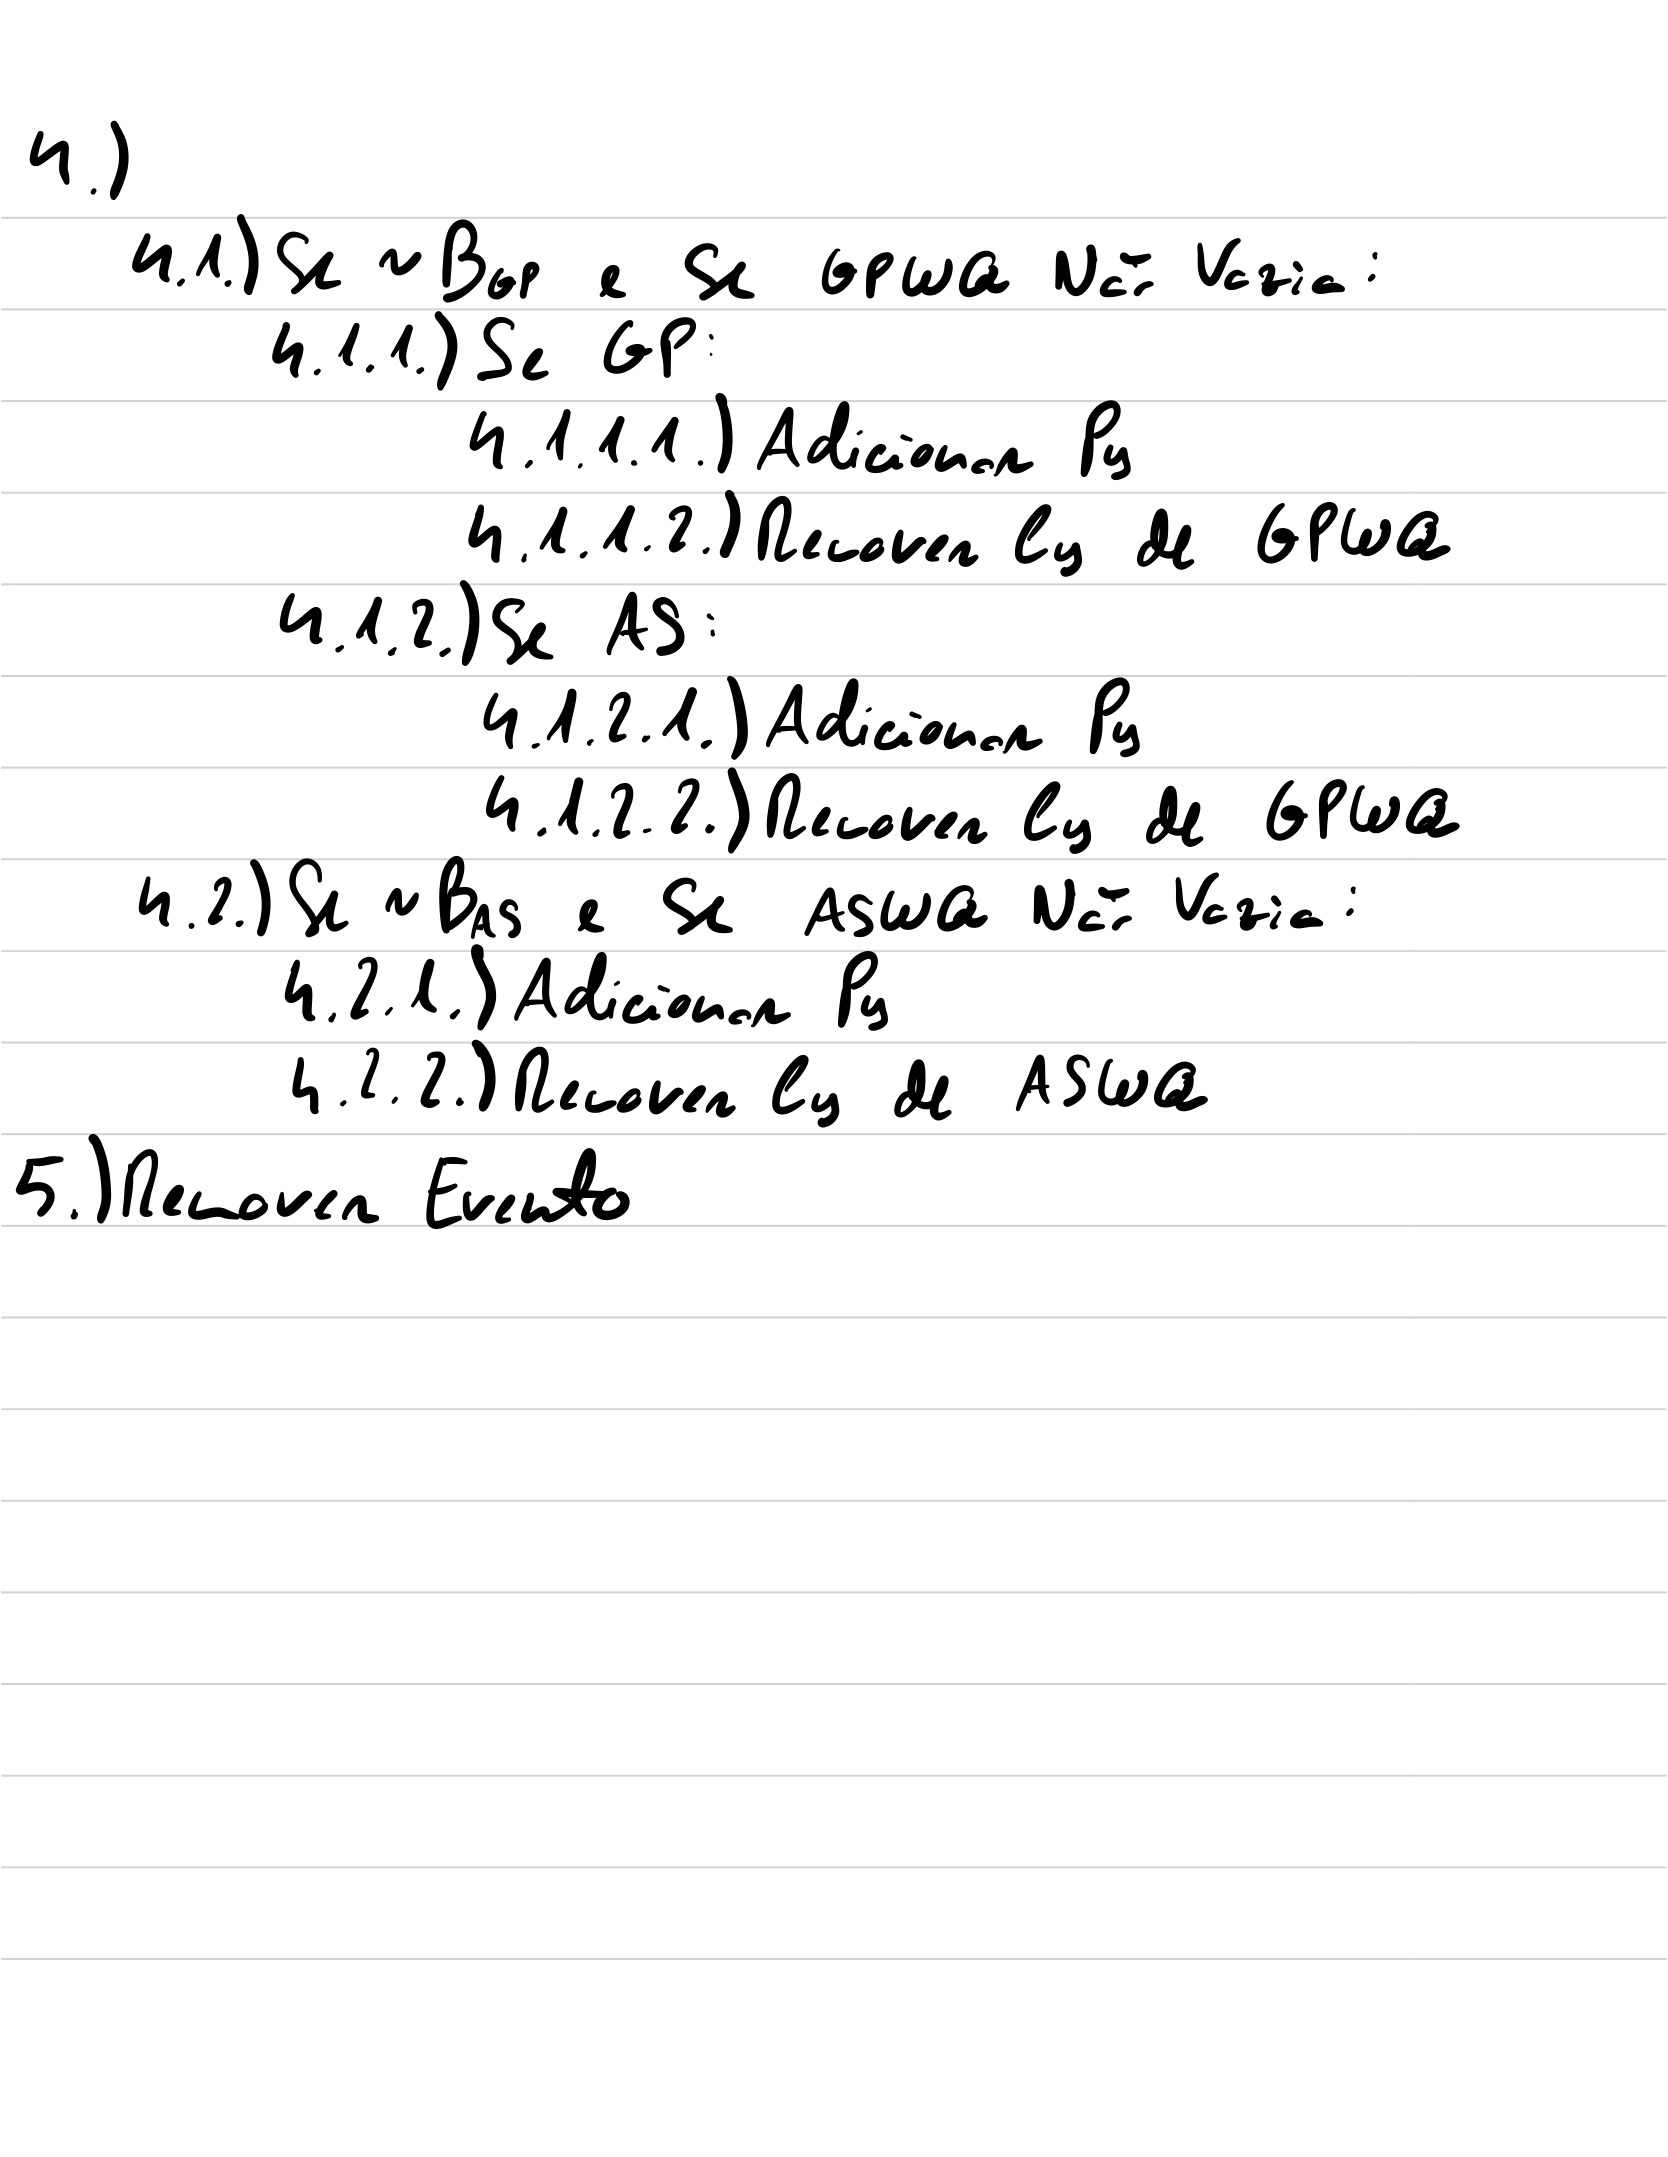 4.)
4.1.) Se ~B_GP e Se GPWQ Não Vazia:
4.1.1.) Se GP:
4.1.1.1.) Adicionar Py
4.1.1.2.) Remover Cy de GPWQ
4.1.2.) Se AS:
4.1.2.1.) Adicionar Py
4.1.2.2.) Remover Cy de GPWQ
4.2.) Se ~B_AS e Se ASWQ Não Vazia:
4.2.1.) Adicionar Py
4.2.2.) Remover Cy de ASWQ
5.) Remover Evento